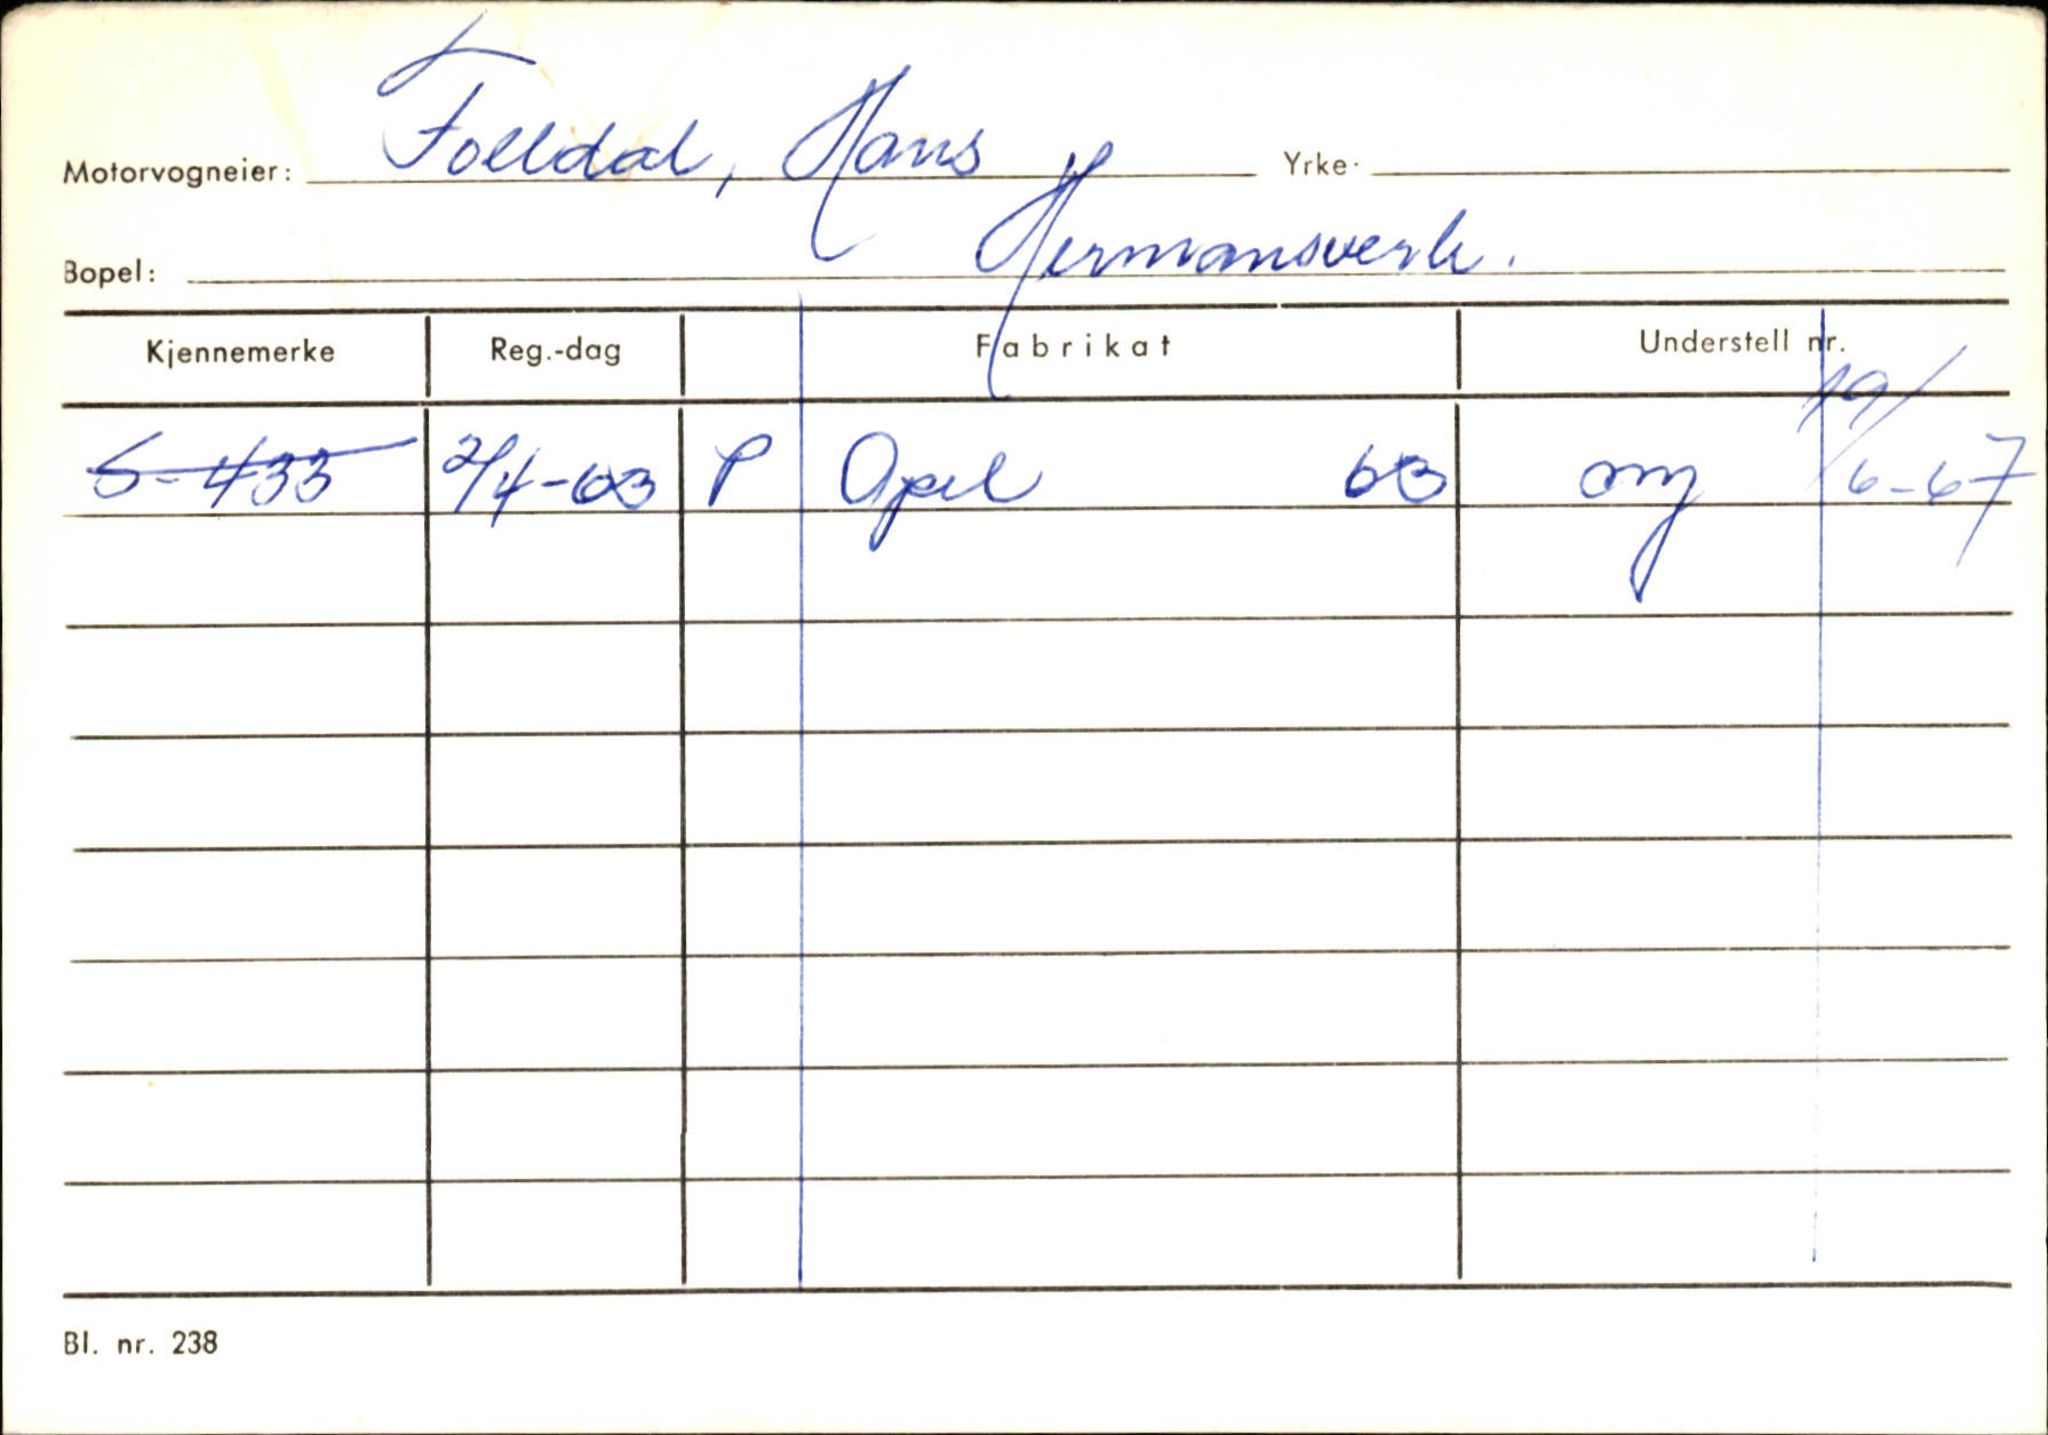 Motorvogneier: Folldal, Hans Yrke:
Bopel: Hermansverk.
Kjennemerke Reg.-dag Fabrikat Understell nr.
S-433 2/4-63 P Opel 63 omj 19/6-67
Bl. nr. 238